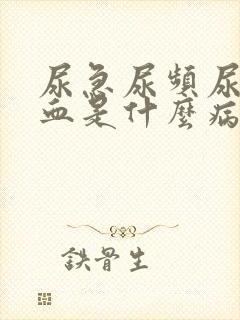 尿急尿頻尿
血是什麼病
鉄骨生